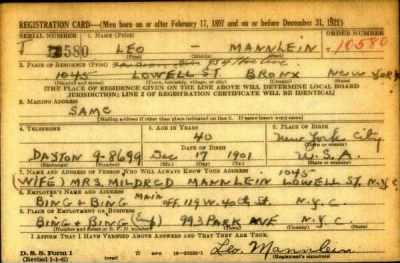 REGISTRATION CARD—(Men born on or after February 17, 1897 and on or before December 31, 1921)
SERIAL NUMBER 1. NAME (Print) ORDER NUMBER
T 580 LEO - MANNLEIN 10580
2. PLACE OF RESIDENCE (Print)
1045 LOWELL ST. BRONX NEW YORK
(Number and street) (Town, township, village, or city) (County) (State)
[THE PLACE OF RESIDENCE GIVEN ON THE LINE ABOVE WILL DETERMINE LOCAL BOARD
JURISDICTION; LINE 2 OF REGISTRATION CERTIFICATE WILL BE IDENTICAL]
3. MAILING ADDRESS
SAME
[Mailing address if other than place indicated on line 2. If same insert word same]
4. TELEPHONE 5. AGE IN YEARS 6. PLACE OF BIRTH
40 New York City
DATE OF BIRTH
DAYTON 9-8699 Dec 17 1901 U.S.A.
7. NAME AND ADDRESS OF PERSON WHO WILL ALWAYS KNOW YOUR ADDRESS 1045
WIFE) MRS. MILDRED MANNLEIN LOWELL ST. N.Y.C.
8. EMPLOYER'S NAME AND ADDRESS
BING & BING Main OFF. 119 W. 40th ST. N.Y.C.
9. PLACE OF EMPLOYMENT OR BUSINESS
BING & BING 993 PARK AVE N.Y.C.
I AFFIRM THAT I HAVE VERIFIED ABOVE ANSWERS AND THAT THEY ARE TRUE.
Leo. Mannlein
D. S. S. Form 1
(Revised 1-1-42) (over) (Registrant's signature)